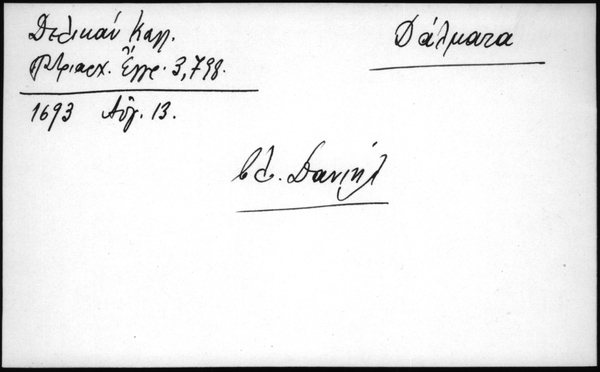 Δελικάν Καλλ.
Πατριαρχ. Ἔγγρ. 3,798.
1693 Αὔγ. 13.
Δάλματα
βλ. Δανιήλ